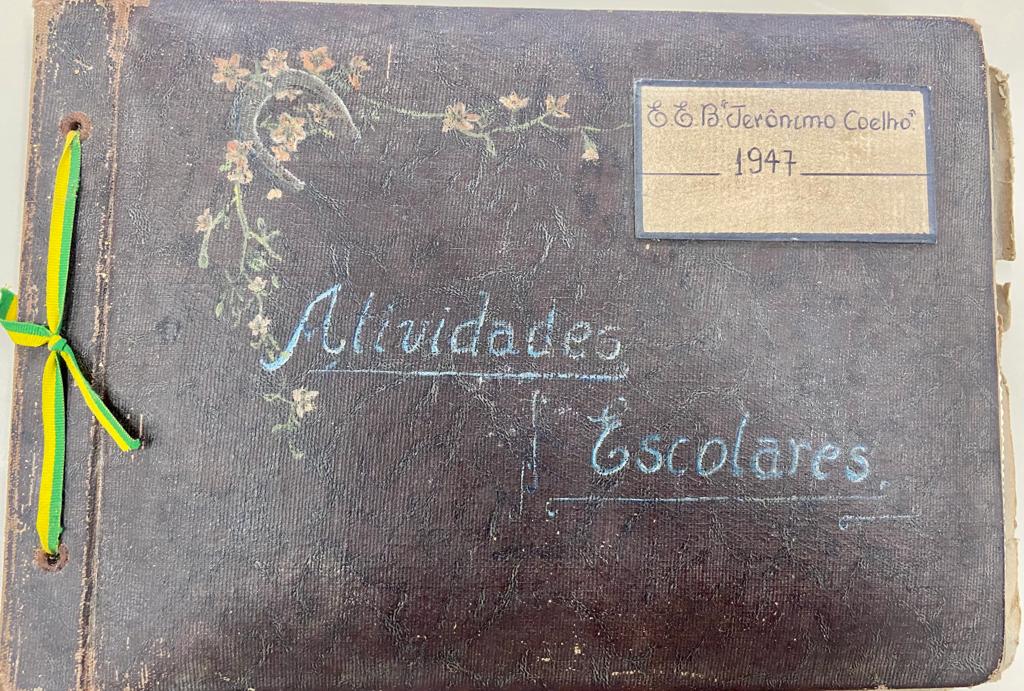 E E B "Jerônimo Coelho"
1947
Atividades
Escolares.